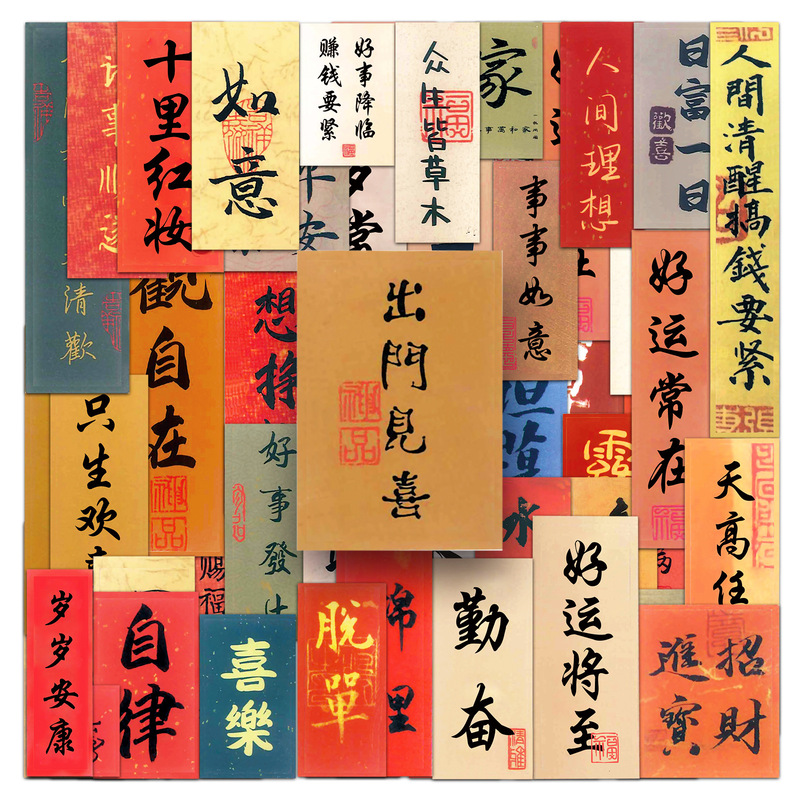 清歡
事順
十里红妆
如意
好事降临
赚钱要紧
众生皆草木
家
事萬和家
人间理想
日富一日
歡喜
人間清醒搞錢要紧
事事如意
好运常在
觀自在
想挣
出門見喜
只生欢
好事發
天高任
岁岁安康
自律
喜樂
賜福
脱單
綿里
勤奋
好运将至
招財
進寶